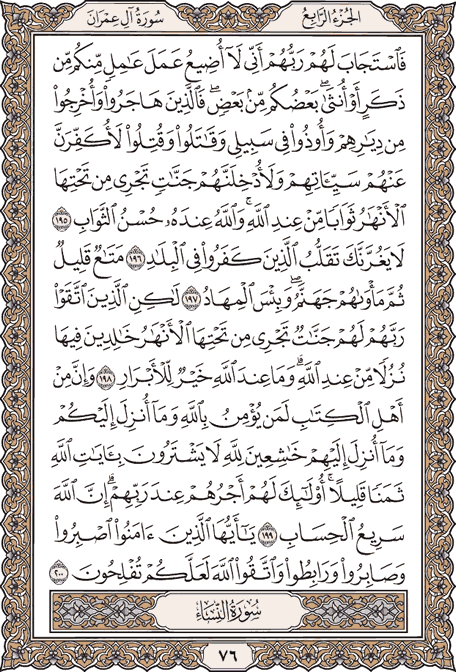 سُورَةُ آلِ عِمْرَانَ الجُزْءُ الرَّابِعُ
فَٱسْتَجَابَ لَهُمْ رَبُّهُمْ أَنِّى لَآ أُضِيعُ عَمَلَ عَٰمِلٍ مِّنكُم مِّن
ذَكَرٍ أَوْ أُنثَىٰ ۖ بَعْضُكُم مِّنۢ بَعْضٍ ۖ فَٱلَّذِينَ هَاجَرُوا۟ وَأُخْرِجُوا۟
مِن دِيَٰرِهِمْ وَأُوذُوا۟ فِى سَبِيلِى وَقَٰتَلُوا۟ وَقُتِلُوا۟ لَأُكَفِّرَنَّ
عَنْهُمْ سَيِّـَٔاتِهِمْ وَلَأُدْخِلَنَّهُمْ جَنَّٰتٍ تَجْرِى مِن تَحْتِهَا
ٱلْأَنْهَٰرُ ثَوَابًا مِّنْ عِندِ ٱللَّهِ ۗ وَٱللَّهُ عِندَهُۥ حُسْنُ ٱلثَّوَابِ ١٩٥
لَا يَغُرَّنَّكَ تَقَلُّبُ ٱلَّذِينَ كَفَرُوا۟ فِى ٱلْبِلَٰدِ ١٩٦ مَتَٰعٌ قَلِيلٌ
ثُمَّ مَأْوَىٰهُمْ جَهَنَّمُ ۚ وَبِئْسَ ٱلْمِهَادُ ١٩٧ لَٰكِنِ ٱلَّذِينَ ٱتَّقَوْا۟
رَبَّهُمْ لَهُمْ جَنَّٰتٌ تَجْرِى مِن تَحْتِهَا ٱلْأَنْهَٰرُ خَٰلِدِينَ فِيهَا
نُزُلًا مِّنْ عِندِ ٱللَّهِ ۗ وَمَا عِندَ ٱللَّهِ خَيْرٌ لِّلْأَبْرَارِ ١٩٨ وَإِنَّ مِنْ
أَهْلِ ٱلْكِتَٰبِ لَمَن يُؤْمِنُ بِٱللَّهِ وَمَآ أُنزِلَ إِلَيْكُمْ
وَمَآ أُنزِلَ إِلَيْهِمْ خَٰشِعِينَ لِلَّهِ لَا يَشْتَرُونَ بِـَٔايَٰتِ ٱللَّهِ
ثَمَنًا قَلِيلًا ۗ أُو۟لَٰٓئِكَ لَهُمْ أَجْرُهُمْ عِندَ رَبِّهِمْ ۗ إِنَّ ٱللَّهَ
سَرِيعُ ٱلْحِسَابِ ١٩٩ يَٰٓأَيُّهَا ٱلَّذِينَ ءَامَنُوا۟ ٱصْبِرُوا۟
وَصَابِرُوا۟ وَرَابِطُوا۟ وَٱتَّقُوا۟ ٱللَّهَ لَعَلَّكُمْ تُفْلِحُونَ ٢٠٠
سُورَةُ النِّسَاءِ
٧٦